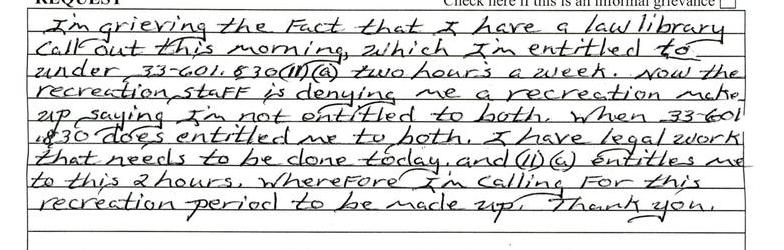 REQUEST Check here if this is an informal grievance
I'm grieving the Fact that I have a law library
Call out this morning, which I'm entitled to
under 33-601.830(11)(a) two hours a week. Now the
recreation staFF is denying me a recreation make
up saying I'm not entitled to both. When 33-601
.830 does entitled me to both. I have legal work
that needs to be done today, and (11)(a) entitles me
to this 2 hours. WhereFore I'm Calling For this
recreation period to be made up. Thank you.